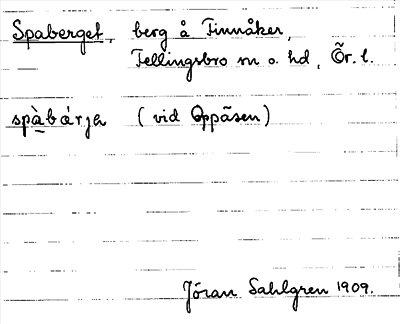 Spaberget, berg å Finnåker,
Fellingsbro sn o. hd, Ör. l.
spàbárja (vid Oppåsen)
Jöran Sahlgren 1909.